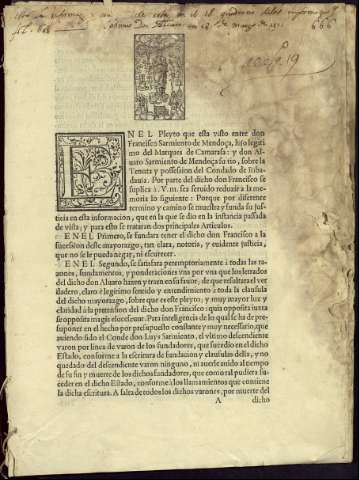 EN EL Pleyto que esta visto entre don
Francisco Sarmiento de Mendoça, hijo legiti
mo del Marques de Camarasa: y don Al-
uaro Sarmiento de Mendoça su tio, sobre la
Tenuta y possession del Condado de Riba-
dauia. Por parte del dicho don Francisco se
suplica à V. m. sea seruido reduzir a la me-
moria lo siguiente: Porque por diferente
termino y camino se muestra y funda su Ius-
ticia en esta informacion, que en la que se dio en la instancia passada
de vista; y para esto se trataran dos principales Articulos.
EN EL Primero, se fundara tener el dicho don Francisco a la
sucession deste mayorazgo, tan clara, notoria, y euidente justicia,
que no se le pueda negar, ni escurecer.
EN EL Segundo, se satisfara peremptoriamente à todas las ra-
zones, fundamentos, y ponderaciones vna por vna que los letrados
del dicho don Aluaro hazen y traen en su fauor; de que resultara el ver
dadero, claro è legitimo sentido y entendimiento a toda la clausula
del dicho mayorazgo, sobre que es este pleyto: y muy mayor luz y
claridad à la pretension del dicho don Francisco: quia opposita iuxta
se opposita magis elucescunt. Para inteligencia de lo qual se ha de pre-
suponer en el hecho por presupuesto constante y muy necessario, que
auiendo sido el Conde don Luys Sarmiento, el vltimo descendiente
varon por linea de varon de los fundadores, que sucedio en el dicho
Estado, conforme a la escritura de fundacion y clausulas della, y no
quedado del descendiente varon ninguno, ni auerle auido al tiempo
de su fin y muerte de los dichos fundadores, que como tal pudiera su-
ceder en el dicho Estado, conforme à los llamamientos que contiene
la dicha escritura. A falta de todos los dichos varones, por muerte del
A dicho